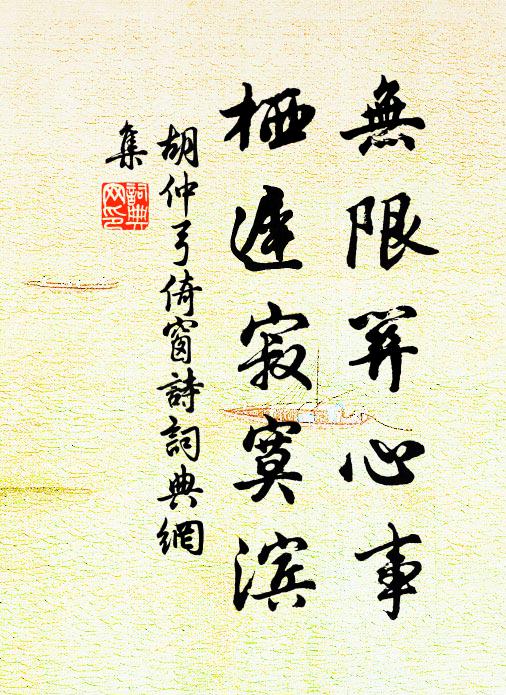 無限關心事
栖遲寂寞滨
胡仲弓倚窗詩詞典網
集
詞典
网印